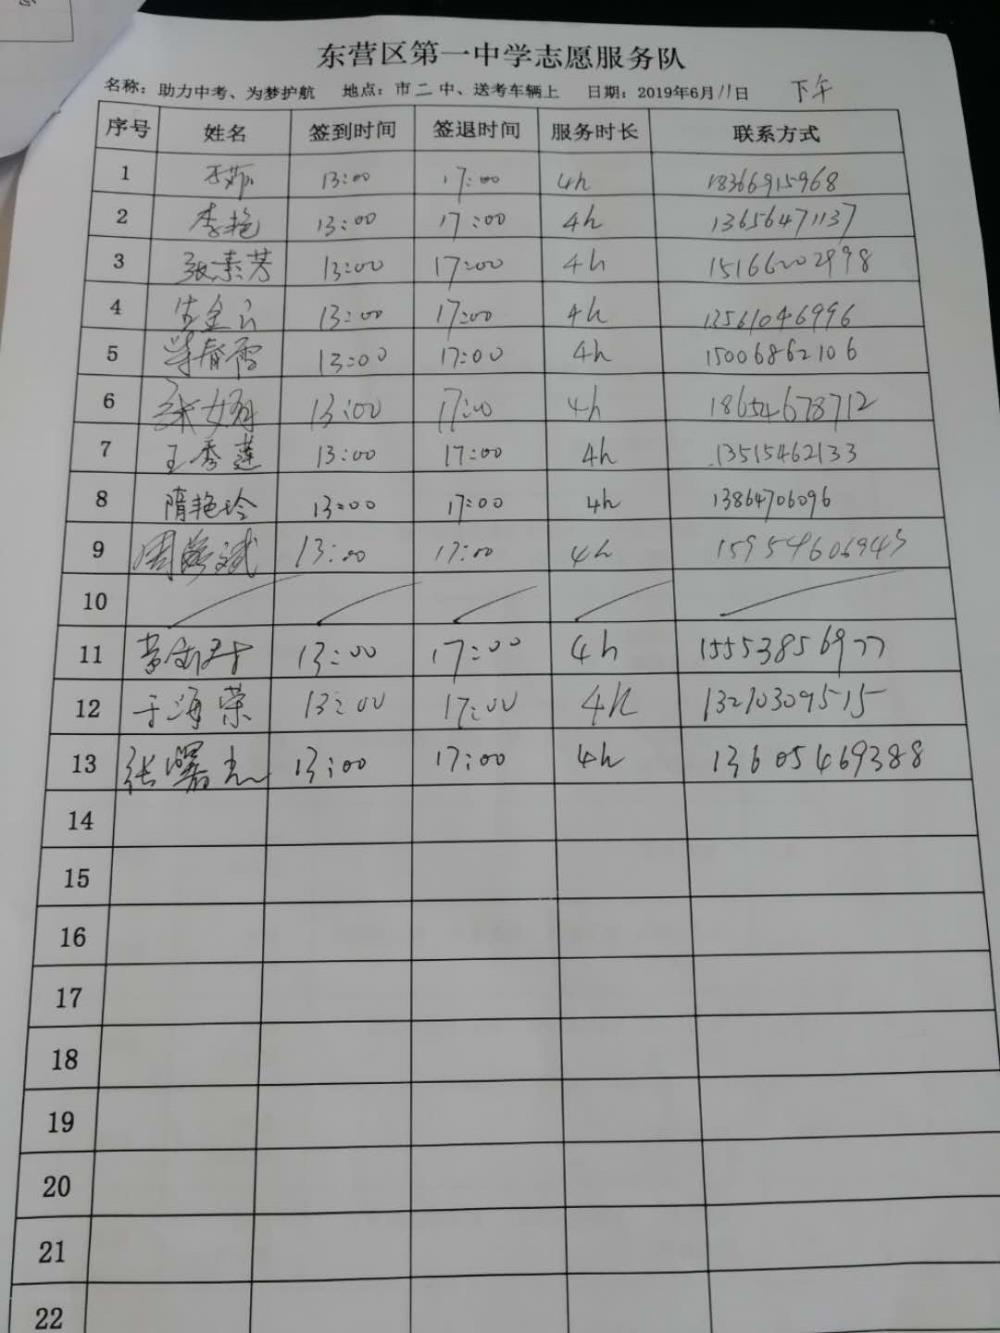 东营区第一中学志愿服务队
名称：助力中考、为梦护航 地点：市二中、送考车辆上 日期：2019年6月11日 下午
序号 姓名 签到时间 签退时间 服务时长 联系方式
1 13:00 17:00 4h 18366915968
2 李艳 13:00 17:00 4h 13656471137
3 张素芳 13:00 17:00 4h 15166202998
4 13:00 17:00 4h 13561046996
5 13:00 17:00 4h 15006862106
6 13:00 17:00 4h 18654678712
7 王秀莲 13:00 17:00 4h 13515462133
8 隋艳玲 13:00 17:00 4h 13864706096
9 13:00 17:00 4h 15954606943
10
11 13:00 17:00 4h 15553856977
12 于海荣 13:00 17:00 4h 13210309515
13 13:00 17:00 4h 13605469388
14
15
16
17
18
19
20
21
22